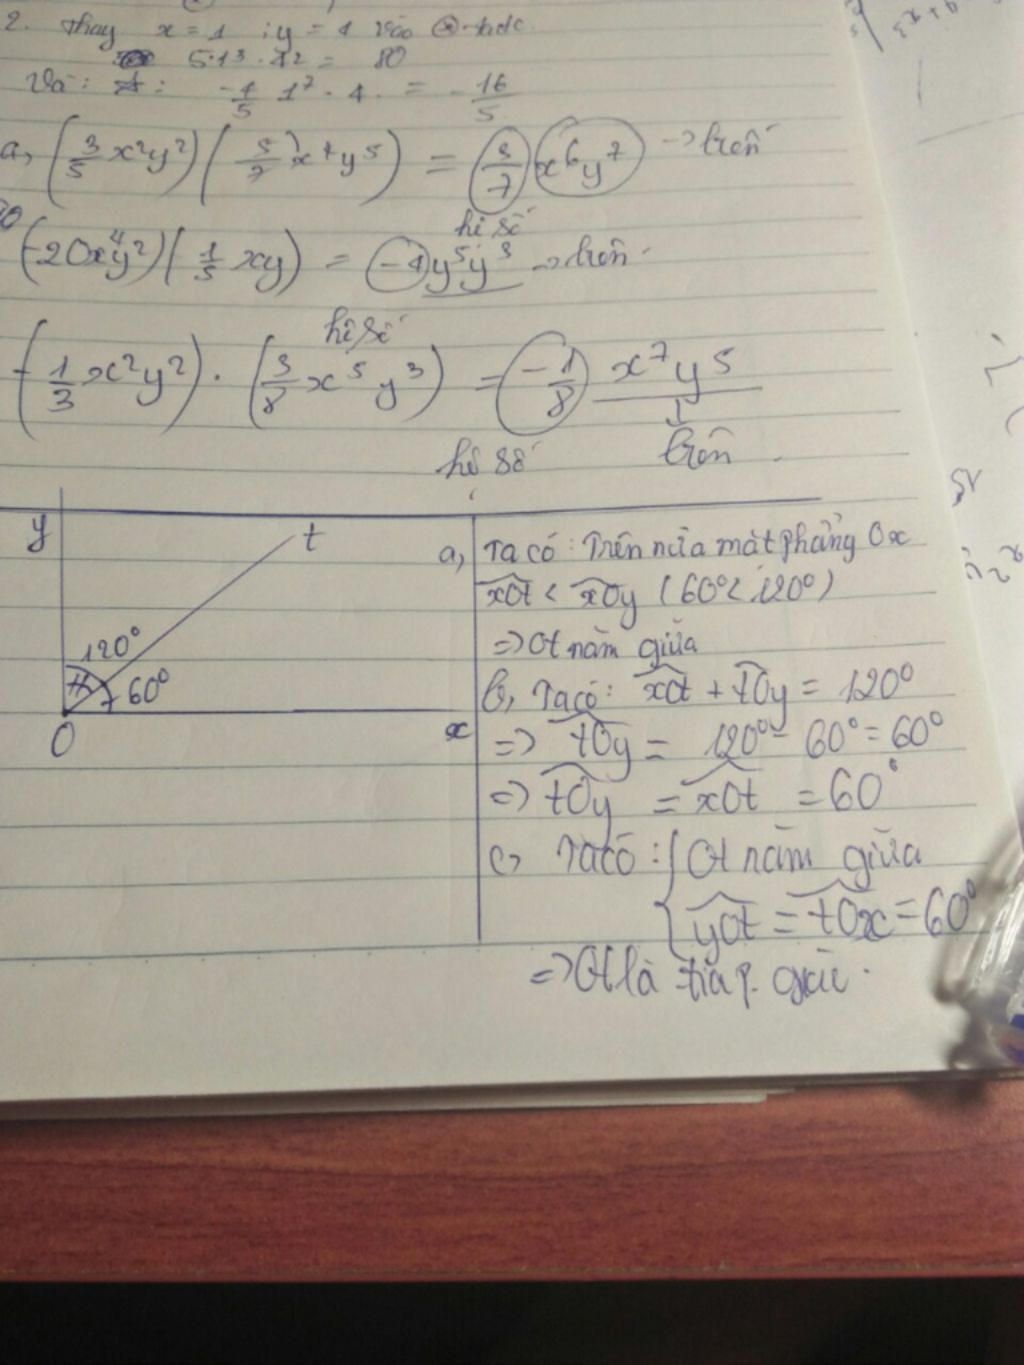 2. Thay x = 1 ; y = 4 vào
5.1³.4² = 80
Và: -1/5 1⁷. 4. = -16/5
a, (3/5 x²y²)(5/7 x⁴y⁵) = 3/7 x⁶y⁷ → biến
hệ số
(-20x⁴y²)(1/5 xy) = -4 y⁵y³ → biến
hệ số
(-1/3 x²y²) . (3/8 x⁵y³) = -1/8 x⁷y⁵
hệ số biến
y t
120°
60°
O x
a, Ta có: Trên nửa mặt phẳng Ox
xOt < xOy (60° < 120°)
=> Ot nằm giữa
b, Ta có: xOt + tOy = 120°
=> tOy = 120° - 60° = 60°
=> tOy = xOt = 60°
c, Ta có: { Ot nằm giữa
yOt = tOx = 60°
=> Ot là tia p. giác.